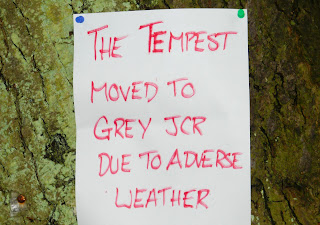 THE TEMPEST
MOVED TO
GREY JCR
DUE TO ADVERSE
WEATHER